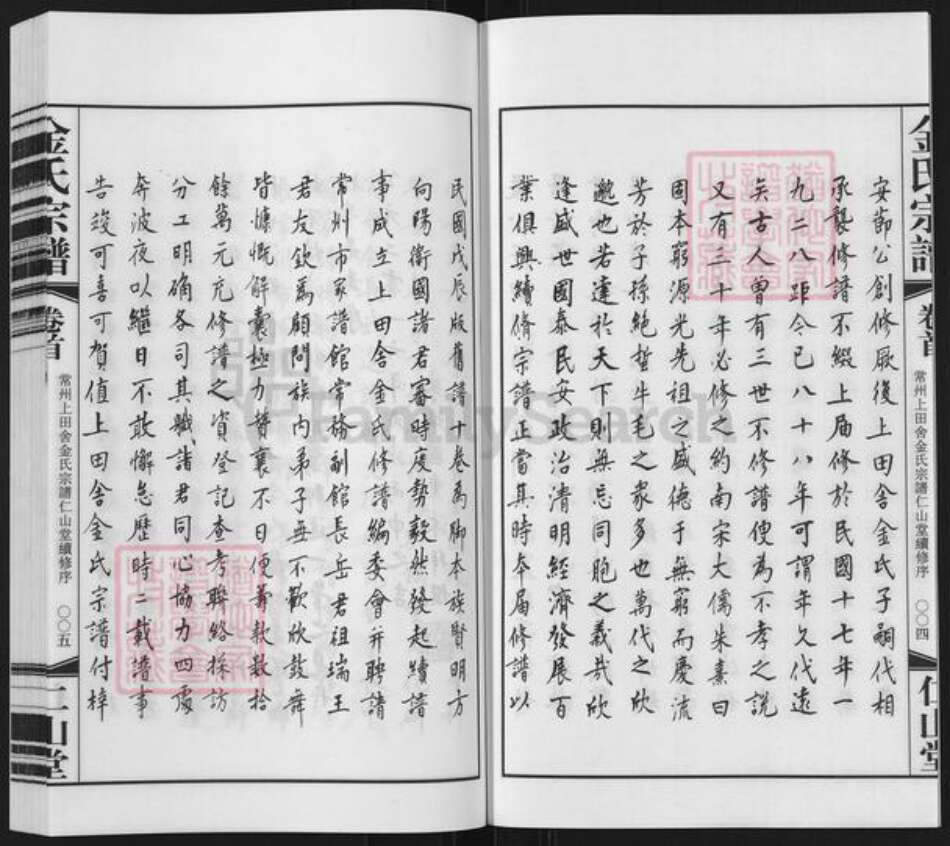 金氏宗譜
卷首
常州上田舍金氏宗譜仁山堂續修序
〇〇四
仁山堂
安節公創修厥後上田舍金氏子嗣代相
承襲修譜不綴上届修於民國十七年一
九二八距今已八十八年可謂年久代遠
矣古人曾有三世不修譜便為不孝之説
又有三十年必修之約南宋大儒朱熹曰
固本窮源光先祖之盛德于無窮而慶流
芳於子孫絶哲牛毛之衆多也萬代之欣
邈也若達於天下則無忘同胞之義哉欣
逢盛世國泰民安政治清明經濟發展百
業俱興續脩宗譜正當其時本届修譜以
民國戊辰版舊譜十卷為脚本族賢明方
向陽衛國諸君審時度勢毅然發起續譜
事成立上田舍金氏修譜編委會并聘請
常州市家譜館常務副館長岳君祖瑞王
君友欽為顧問族内弟子無不歡欣鼓舞
皆慷慨解囊極力贊襄不日便籌款數拾
餘萬元充修譜之資登記查考聯絡採訪
分工明确各司其職諸君同心協力四處
奔波夜以繼日不敢懈怠歷時二載譜事
告竣可喜可賀值上田舍金氏宗譜付梓
金氏宗譜
卷首
常州上田舍金氏宗譜仁山堂續修序
〇〇五
仁山堂
FamilySearch